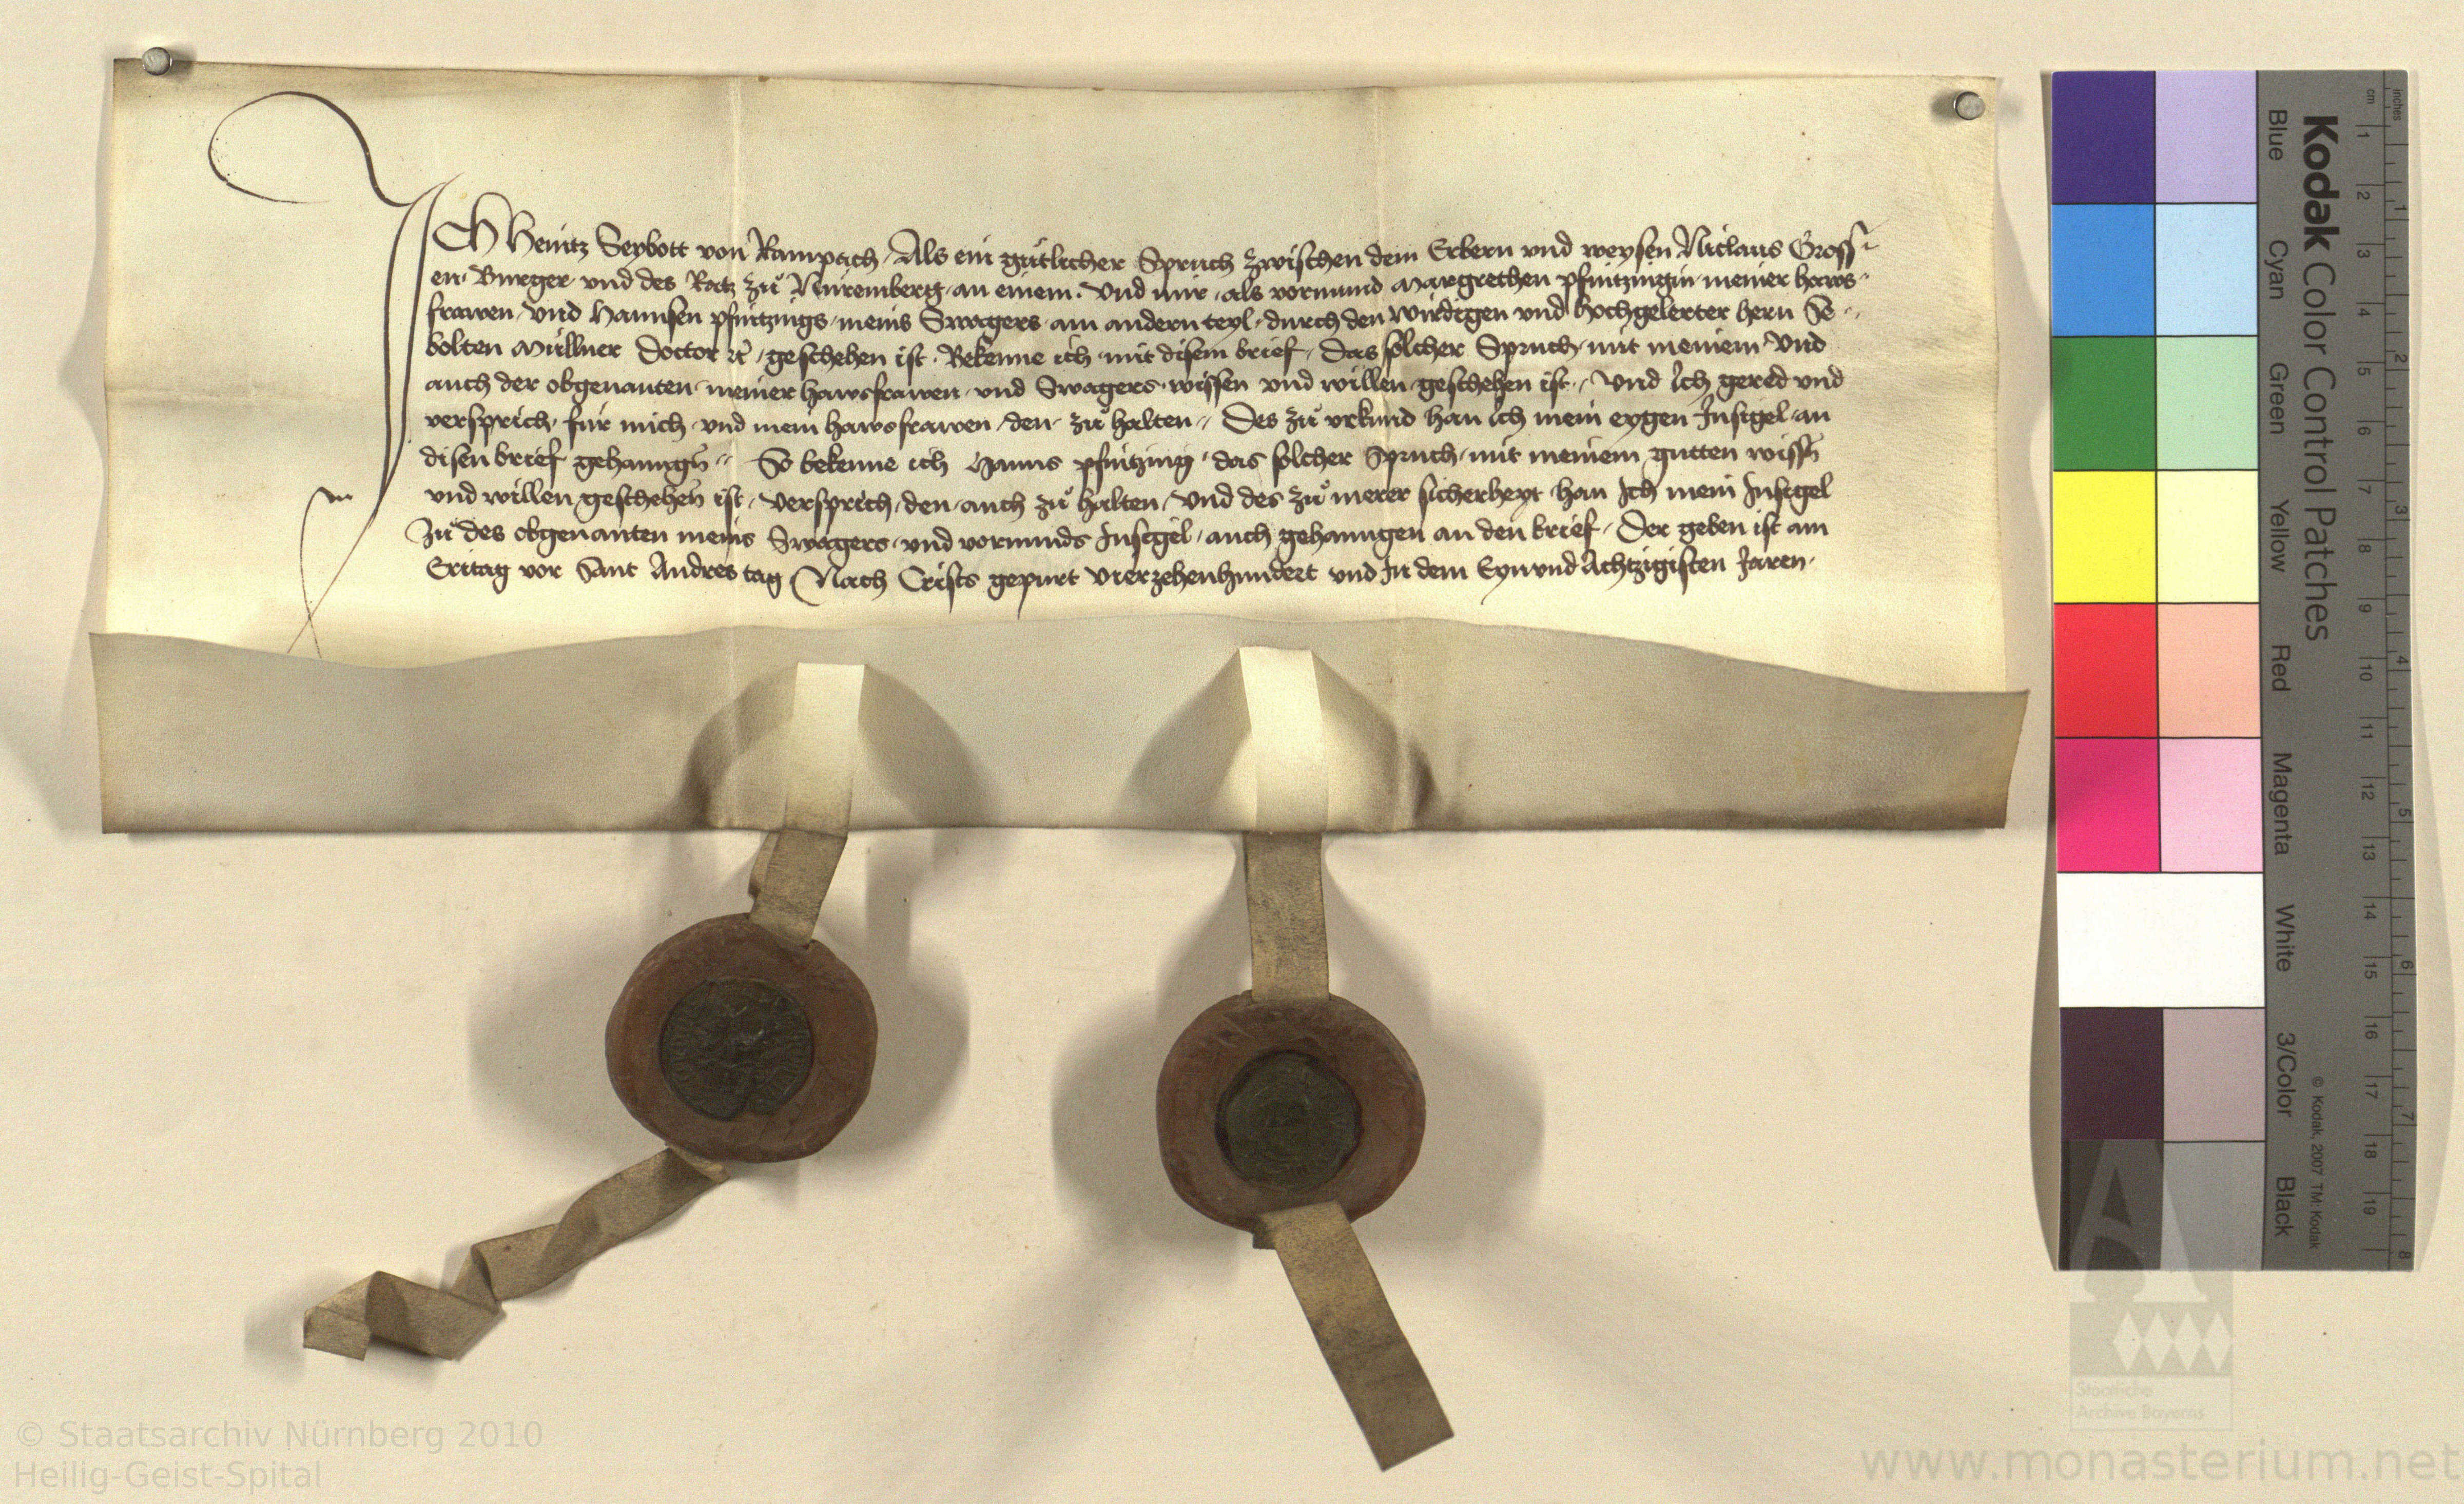 ICh Heintz Seybott von Rampach, Als ein gütlicher Spruch zwischen dem Erbern vnd weysen Niclaus Gross-
en Burger vnd des Ratz zů Nüremberg an einem. Vnd mir als vormund Margrethen pfintzingin meiner haws-
frawen vnd Hannsen pfintzings meins Swagers am andern teyl durch den wirdigen vnd hochgelerter hern Se-
bolten Müllner Doctor etc geschehen ist. Bekenne ich mit disem brief, Das sölcher Spruch mit meinem Vnd
auch der obgenanten meiner hawsfrawen vnd Swagers wissen vnd willen geschehen ist, Vnd Ich gered vnd
versprich, für mich vnd mein hawsfrawen den zů halten, Des zů vrkund han ich mein eygen Insigel an
disen brief gehanngn̄ So bekenne ich Hanns pfintzing das sölcher Spruch mit meinem gutten wissn̄
vnd willen geschehen̄ ist, Versprich den auch zů halten, Vnd des zů merer sicherheyt han Ich mein Insigel
Zů des obgenanten meins Swagers vnd vormunds Insigel auch gehanngen an den brief, Der geben ist am
Eritag vor Sant Andres tag Nach Crists gepurt vierzehenhundert vnd In dem Eynvnd Achtzigisten Jaren.
Kodak Color Control Patches
© Kodak, 2007 TM: Kodak
Blue Cyan Green Yellow Red Magenta White 3/Color Black
cm 1 2 3 4 5 6 7 8 9 10 11 12 13 14 15 16 17 18 19
inches 1 2 3 4 5 6 7 8
Staatliche
Archive Bayerns
© Staatsarchiv Nürnberg 2010
Heilig-Geist-Spital
www.monasterium.net